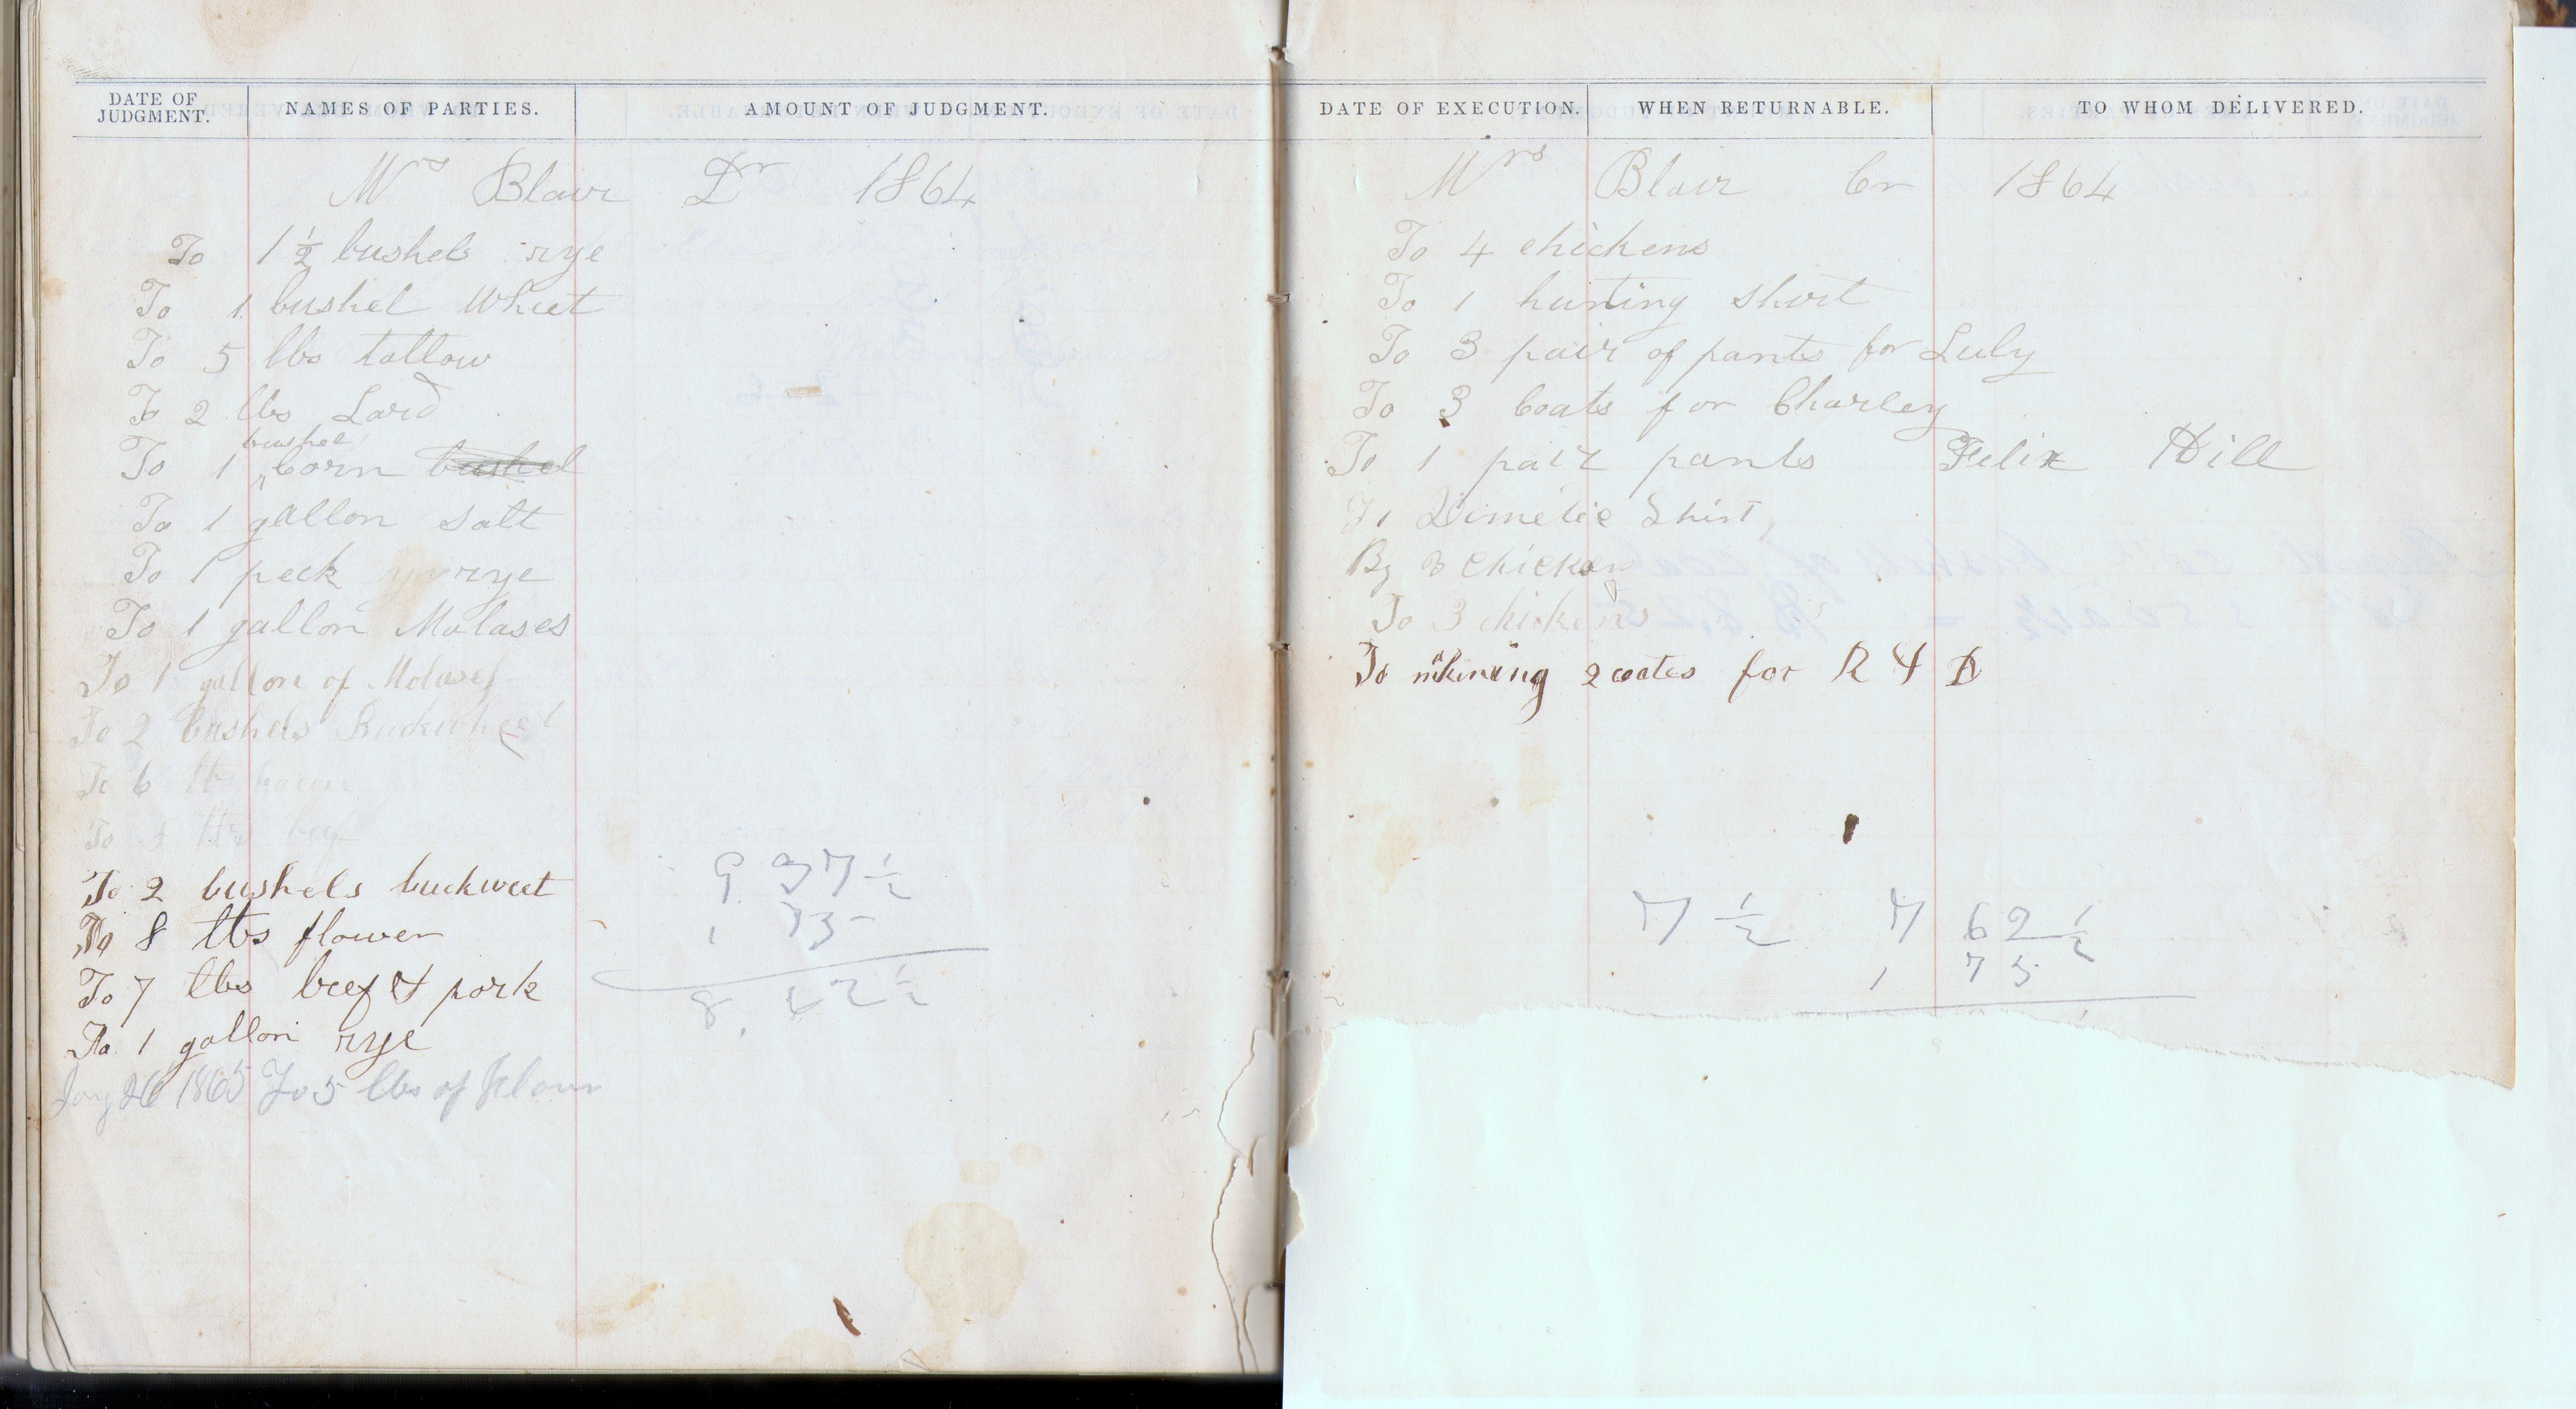 DATE OF JUDGMENT. NAMES OF PARTIES. AMOUNT OF JUDGMENT.
Mrs Blair Dr 1864
To 1 1/2 bushels rye
To 1 bushel Wheet
To 5 lbs tallow
To 2 lbs Lard
To 1 bushel Corn bushel
To 1 gallon salt
To 1 peck rye
To 1 gallon Molases
To 1 gallon of Molases
To 2 bushels Buckwheet
To 6 lbs bacon
To lbs beef
To 2 bushels buckweet
To 8 lbs flower
To 7 lbs beef & pork
To 1 gallon rye
Jany 26 1865 To 5 lbs of Flour
9 37 1/2
1 75
8. 62 1/2
DATE OF EXECUTION. WHEN RETURNABLE. TO WHOM DELIVERED.
Mrs Blair Cr 1864
To 4 chickens
To 1 hunting shirt
To 3 pair of pants for Luly
To 3 Coats for Charley
To 1 pair pants Felix Hill
Shirt
By 3 chickens
To 3 chickens
To 2 coates for R & D
7 1/2 7 62 1/2
1 75